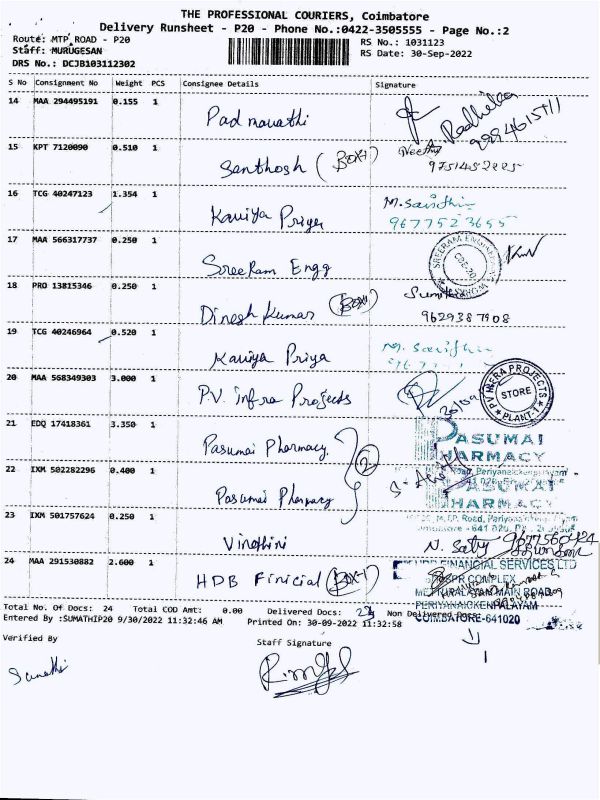 THE PROFESSIONAL COURIERS, Coimbatore
Delivery Runsheet - P20 - Phone No.:0422-3505555 - Page No.:2
Route: MTP ROAD - P20
RS No.: 1031123
Staff: MURUGESAN
RS Date: 30-Sep-2022
DRS No.: DCJB103112302
S No Consignment No Weight PCS Consignee Details Signature
14 MAA 294495191 0.155 1 Padmavathi Radhika
15 KPT 7120090 0.510 1 Santhosh (BOX1)
9751452225
16 TCG 40247123 1.354 1 Kaviya Priya M. Savithri
9677523655
17 MAA 566317737 0.250 1 SreeRam Engg
18 PRO 13815346 0.250 1 Dinesh Kumar (BOX1)
9629387908
19 TCG 40246964 0.520 1 Kaviya Priya M. Savithri
20 MAA 568349303 3.000 1 PV. Infra Projects
PV INFRA PROJECTS STORE PLANT-1
21 EDQ 17418361 3.350 1 Pasumai Pharmacy. PASUMAI
PHARMACY
22 IXM 502282296 0.400 1 Pasumai Pharmacy (2) PASUMAI
PHARMACY
23 IXM 501757624 0.250 1 Vinothini N. Saty
24 MAA 291530882 2.600 1 HDB Finicial (BOX1) FINANCIAL SERVICES LTD
COMPLEX
METTUPALAYAM MAIN ROAD,
PERIYANAICKENPALAYAM
COIMBATORE-641020
Total No. of Docs: 24 Total COD Amt: 0.00 Delivered Docs: Non Delivered Docs:
Entered By :SUMATHIP20 9/30/2022 11:32:46 AM Printed On: 30-09-2022 11:32:58
Verified By Staff Signature